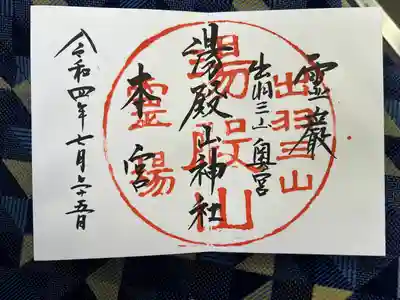 靈巌
出羽三山奥宮
湯殿山神社
本宮
令和四年七月二十五日
出羽三山
湯殿山
霊場